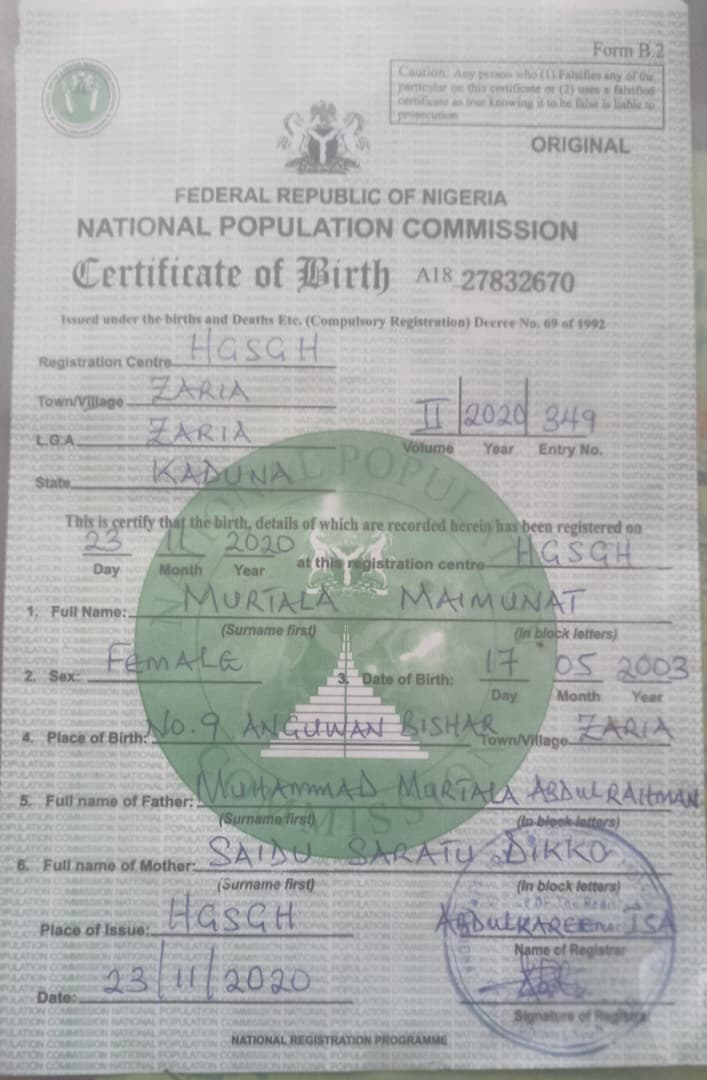 Form B 2
Caution: Any person who (1) Falsifies any of the
particular on this certificate or (2) uses a falsified
certificate as true knowing it to be false is liable to
prosecution
ORIGINAL
FEDERAL REPUBLIC OF NIGERIA
NATIONAL POPULATION COMMISSION
Certificate of Birth A18 27832670
Issued under the births and Deaths Etc. (Compulsory Registration) Decree No. 69 of 1992
Registration Centre HGSGH
Town/Village ZARIA
L.G.A. ZARIA
II 2020 349
Volume Year Entry No.
State KADUNA
This is certify that the birth, details of which are recorded herein has been registered on
23 11 2020 at this registration centre HGSGH
Day Month Year
1. Full Name: MURTALA MAIMUNAT
(Surname first) (In block letters)
2. Sex: FEMALE 3. Date of Birth: 17 05 2003
Day Month Year
4. Place of Birth: No. 9 ANGUWAN BISHAR Town/Village ZARIA
5. Full name of Father: MUHAMMAD MURTALA ABDULRAHMAN
(Surname first) (In block letters)
6. Full name of Mother: SAIDU SARATU DIKKO
(Surname first) (In block letters)
Place of Issue: HGSGH ABDULKAREEM ISA
Name of Registrar
Date: 23/11/2020
Signature of Registrar
NATIONAL REGISTRATION PROGRAMME